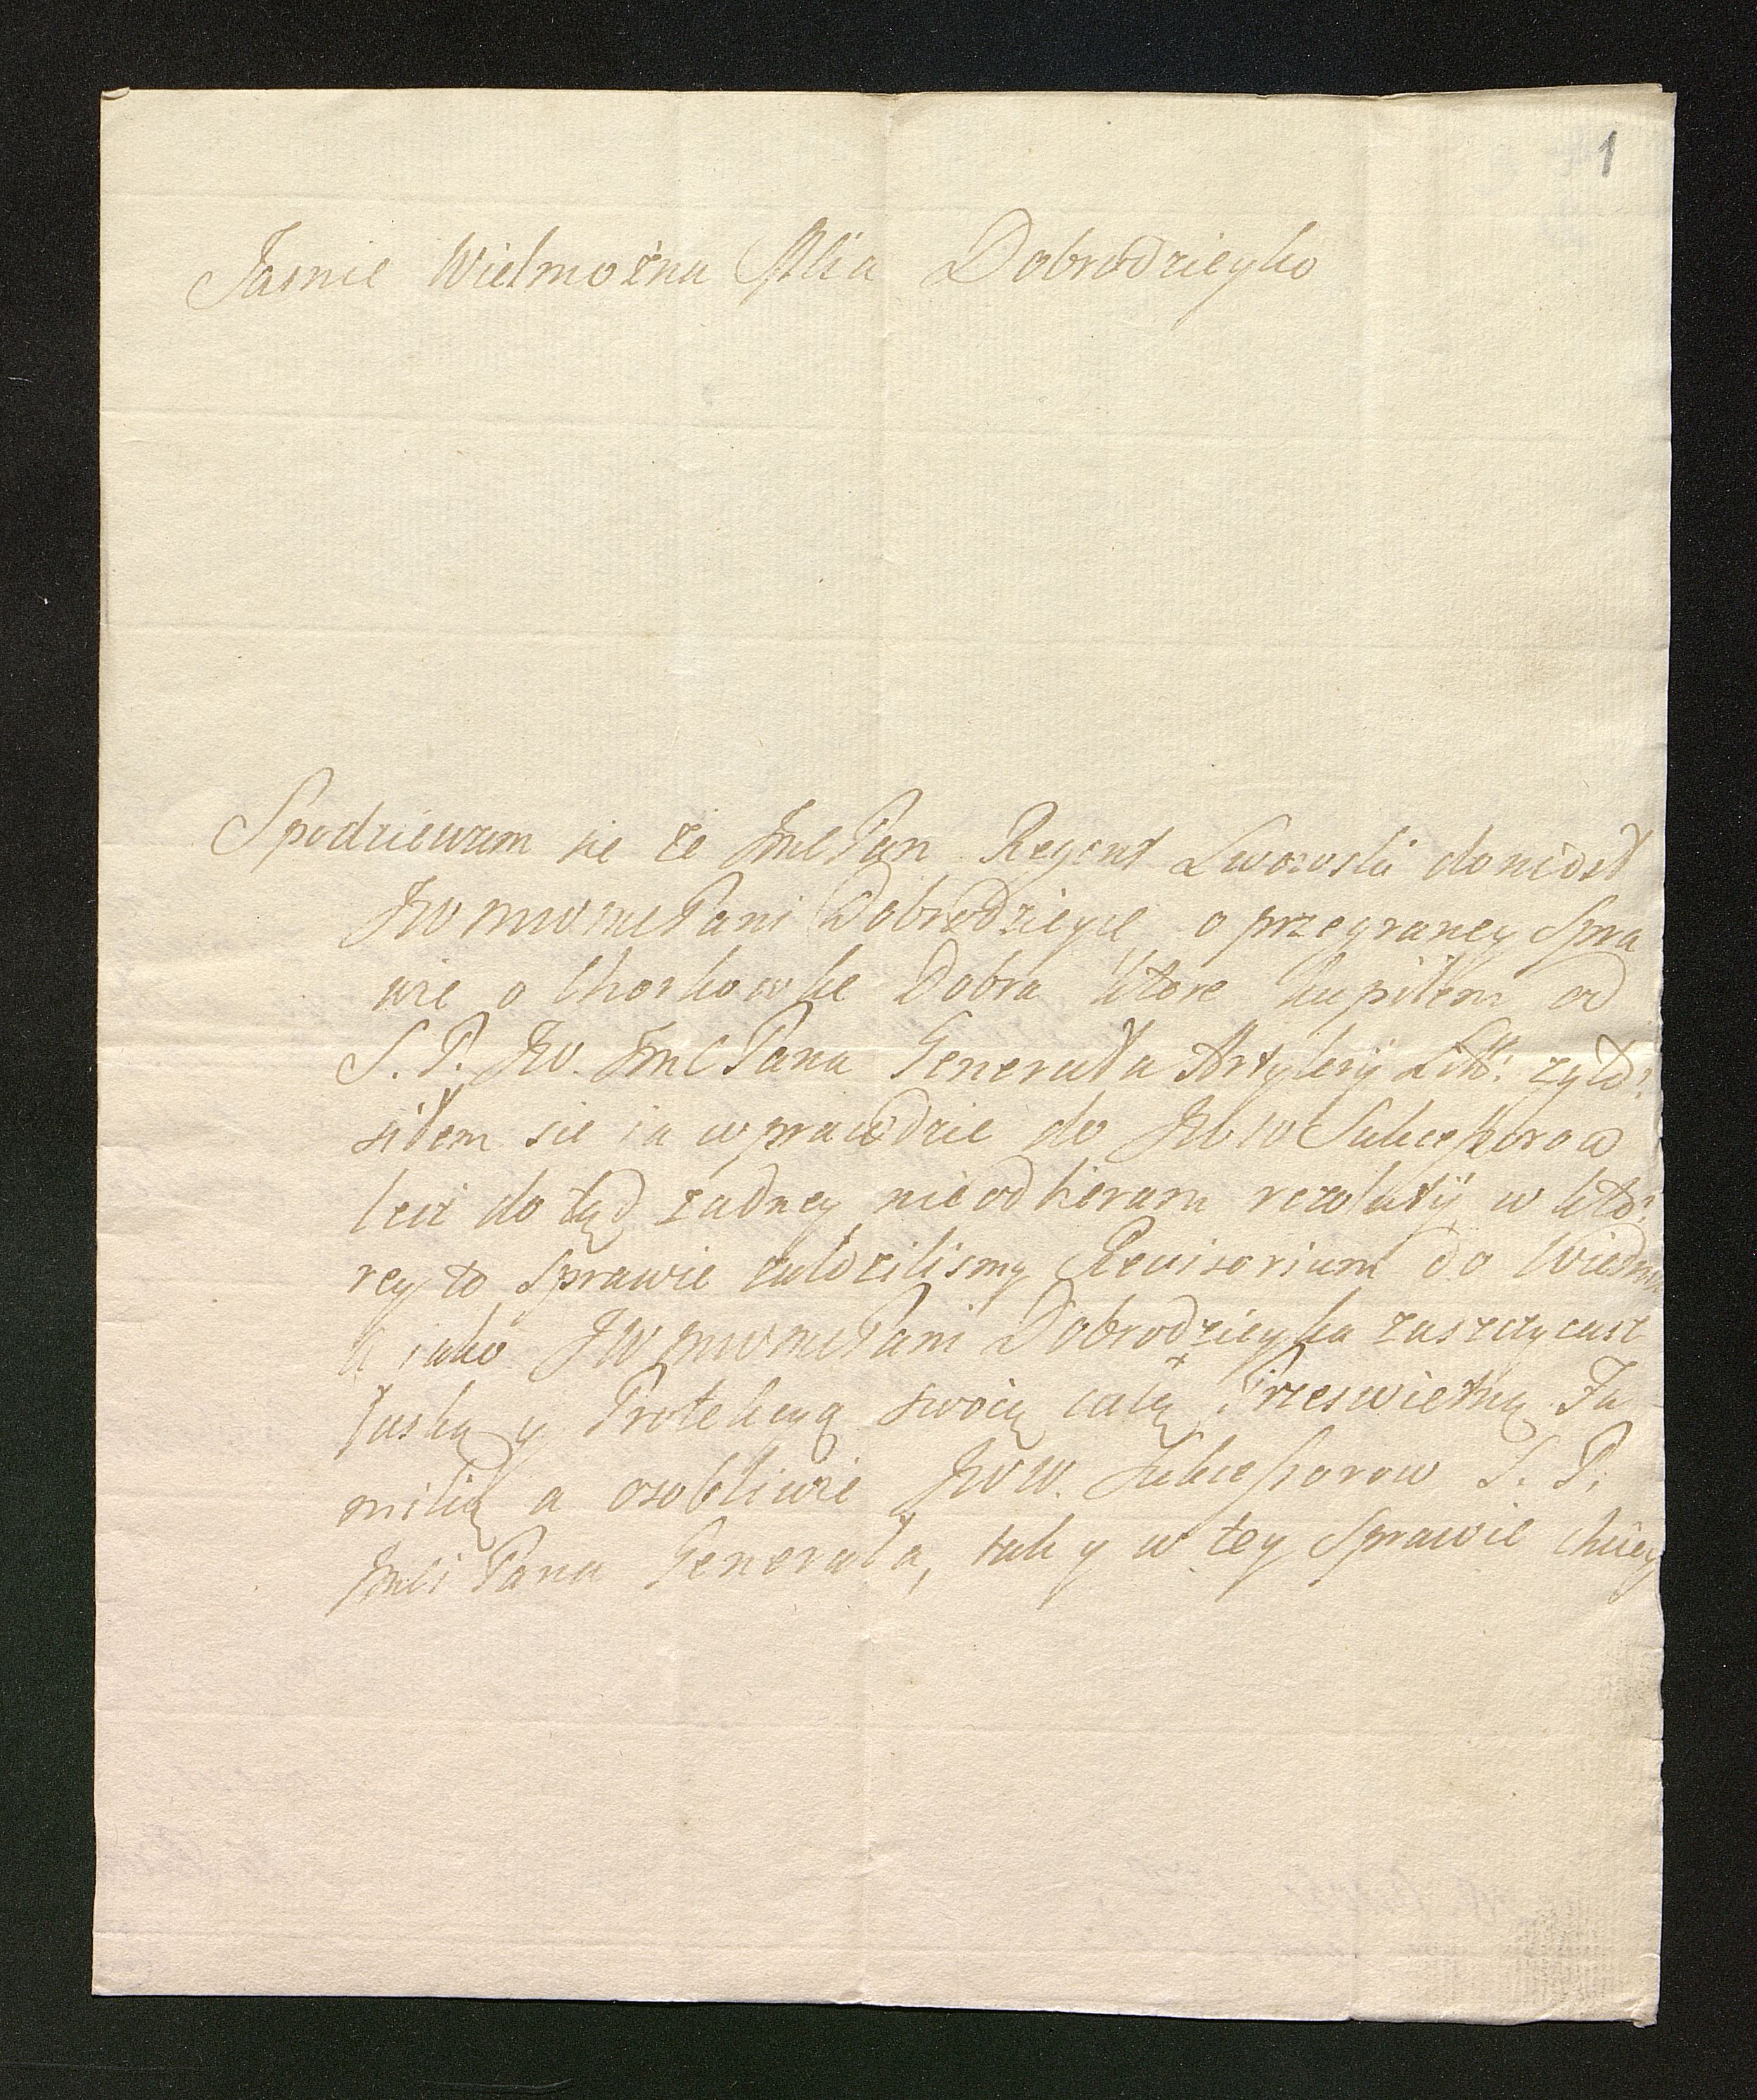 1
Jasnie Wielmożna Mćia Dobrodzieyko
Spodziewam sie że JmcPan Regent Lworoski doniosł
JWMWMPani Dobrodzieyce o przegraney Spra
wie o Chorkowke Dobra ktore kupiłem od
S. P. JW. JmcPana Generała Artylerÿ Litt:
siłem sie ia wprawdzie do JWW Sukcessorow
lecz do tąd żadney nieodbieram rezolutÿ w kto
rey to Sprawie założilismy Revisorium do Wiednia
a iako JWMWMPani Dobrodzieyka zaszczycasz
łaską y Protekcyą swoią całą Przeswietną Fa
milią a osobliwie JWW. Sukcessorow S. P.
Jmci Pana Generała, tak y w tey Sprawie chciey